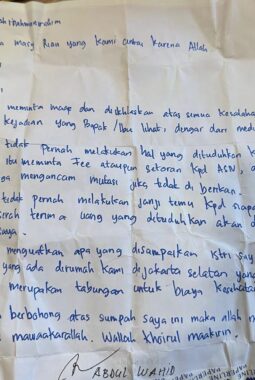 ahirrahmanirrahim
masy Riau yang kami cintai karena Allah
meminta maap dan diikhlaskan atas semua kesalaha
kejadian yang Bapak / Ibu lihat, dengar dari medi
tidak pernah melakukan hal yang dituduhkan k
Ibu meminta Fee ataupun setoran kpd ASN, a
ga mengancam mutasi jika tidak di berikan.
tidak pernah melakukan janji temu kpd siapa
serah terima uang yang dituduhkan akan d
saya.
menguatkan apa yang disampaikan istri say
yang ada dirumah kami dijakarta selatan yang
merupakan tabungan untuk biaya kesehata
berbohong atas sumpah saya ini maka allah
mawaakarallah. Wallah khoirul maakirin.
ABDUL WAHID